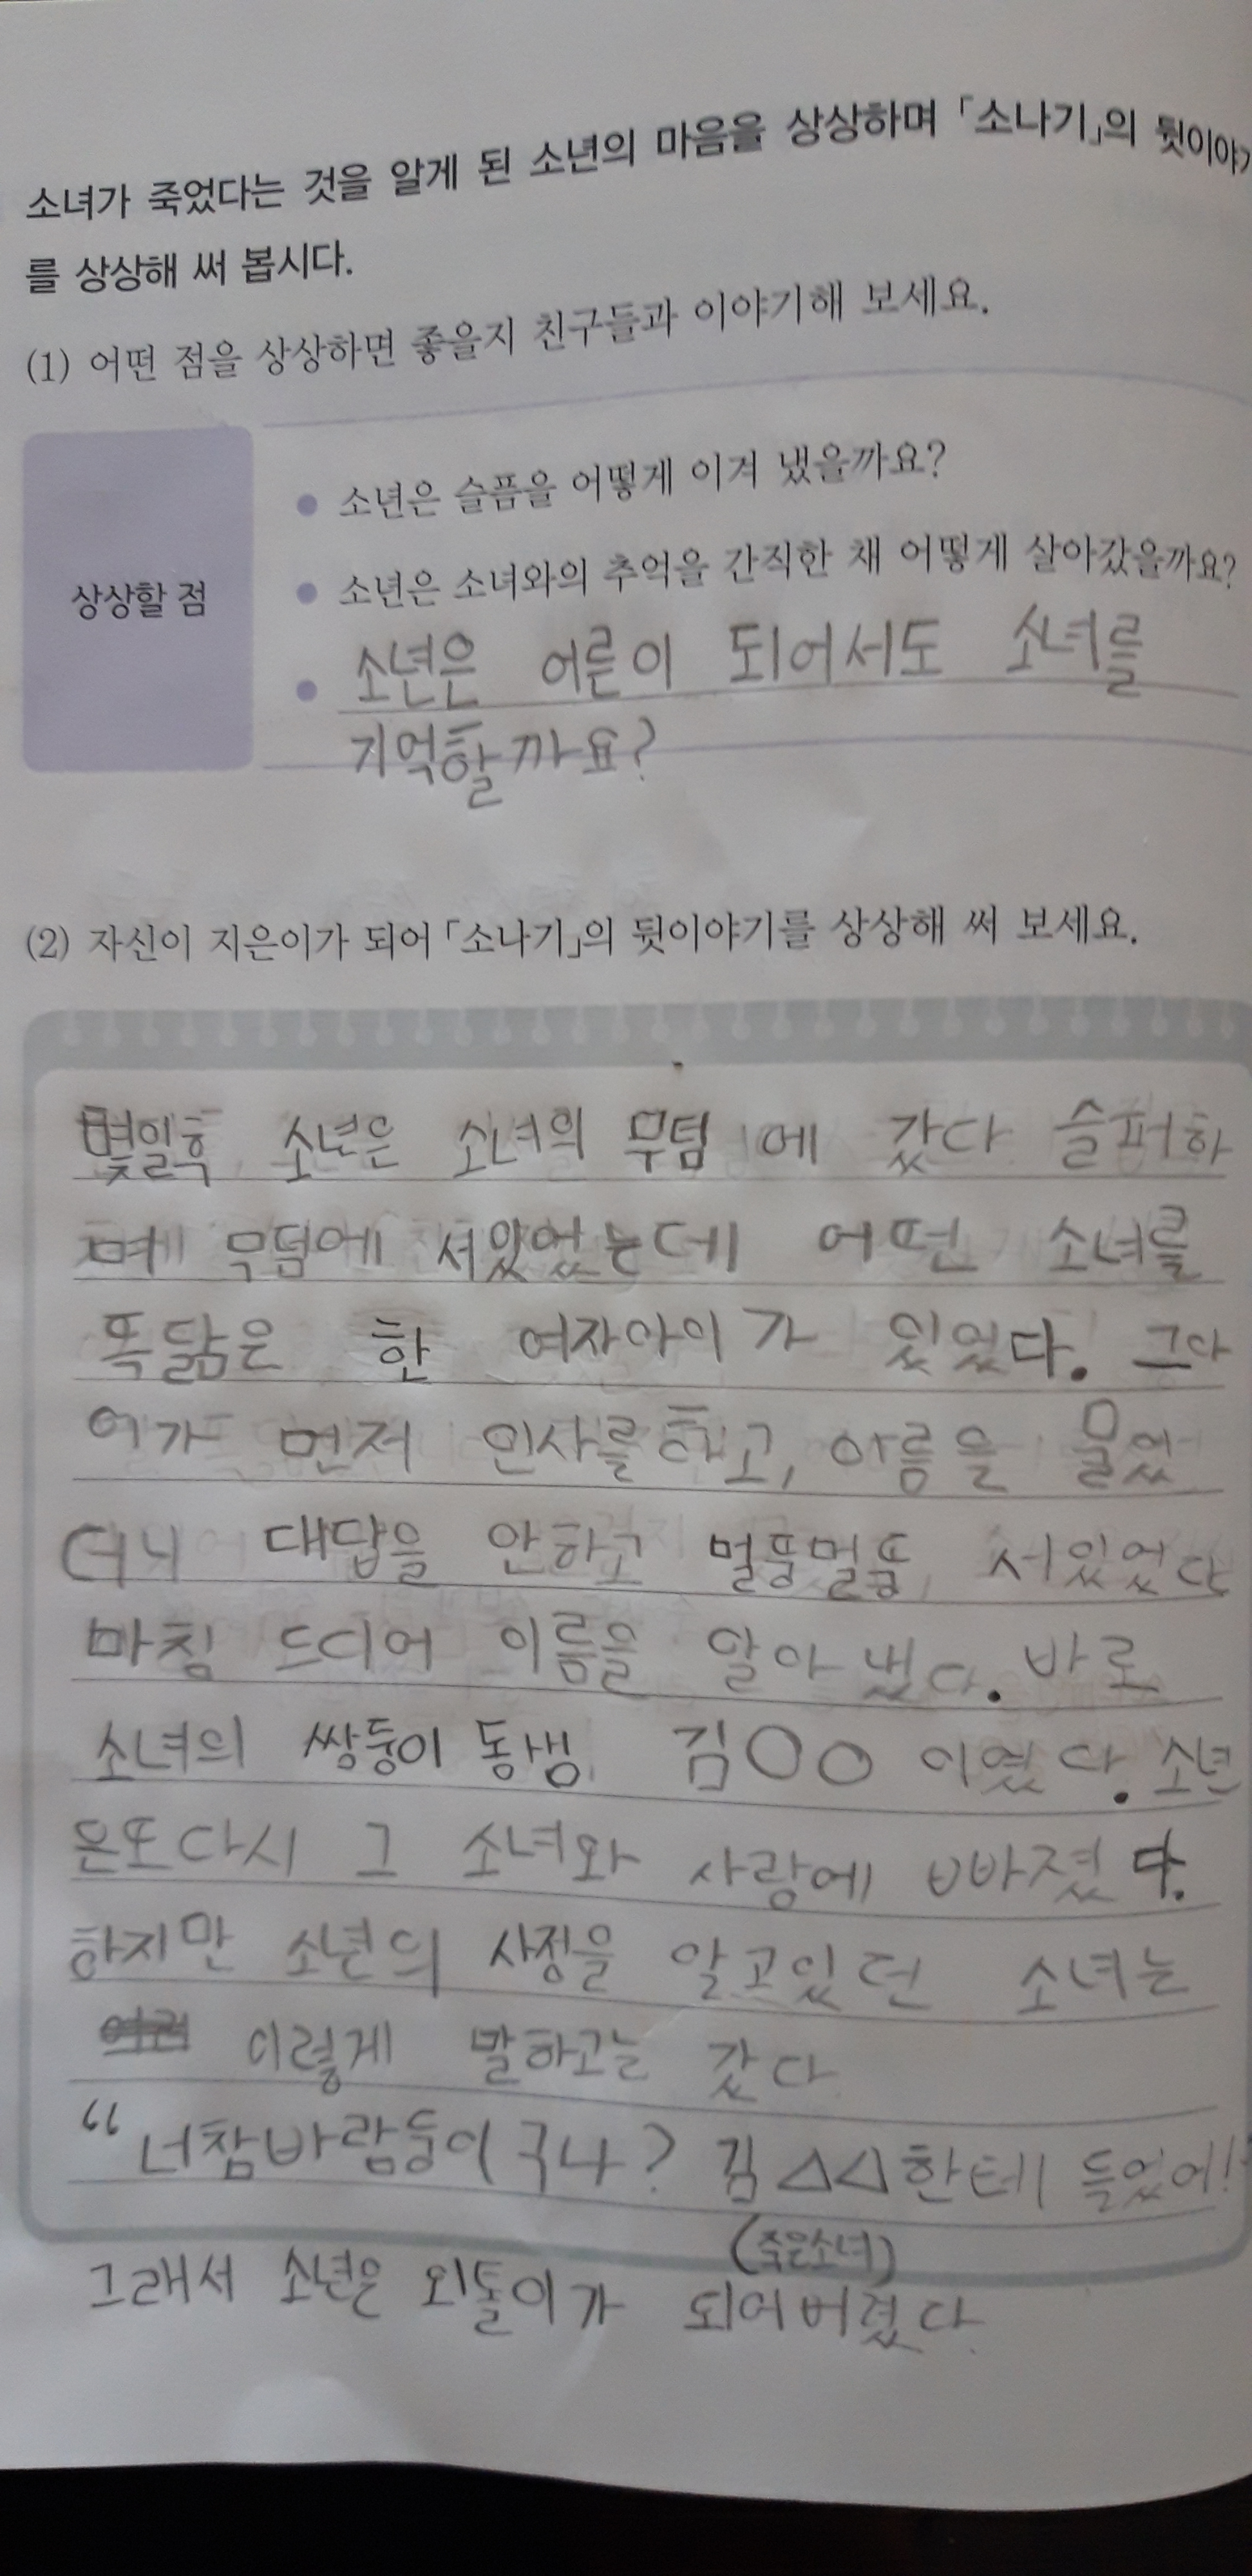 소녀가 죽었다는 것을 알게 된 소년의 마음을 상상하며 「소나기」의 뒷이야기
를 상상해 써 봅시다.
(1) 어떤 점을 상상하면 좋을지 친구들과 이야기해 보세요.
상상할 점
● 소년은 슬픔을 어떻게 이겨 냈을까요?
● 소년은 소녀와의 추억을 간직한 채 어떻게 살아갔을까요?
● 소년은 어른이 되어서도 소녀를
기억할까요?
(2) 자신이 지은이가 되어 「소나기」의 뒷이야기를 상상해 써 보세요.
몇일후 소년은 소녀의 무덤에 갔다 슬퍼하
며 무덤에 서있었는데 어떤 소녀를
똑닮은 한 여자아이가 있었다. 그아
이가 먼저 인사를하고, 이름을 물었
더니 대답을 안하고 멀뚱멀뚱 서있었다
마침 드디어 이름을 알아냈다. 바로
소녀의 쌍둥이 동생 김○○이였다. 소년
은또다시 그 소녀와 사랑에 빠졌다.
하지만 소년의 사정을 알고있던 소녀는
이렇게 말하고는 갔다
“너참바람둥이구나? 김△△한테 들었어!”
(죽은소녀)
그래서 소년은 외톨이가 되어버렸다